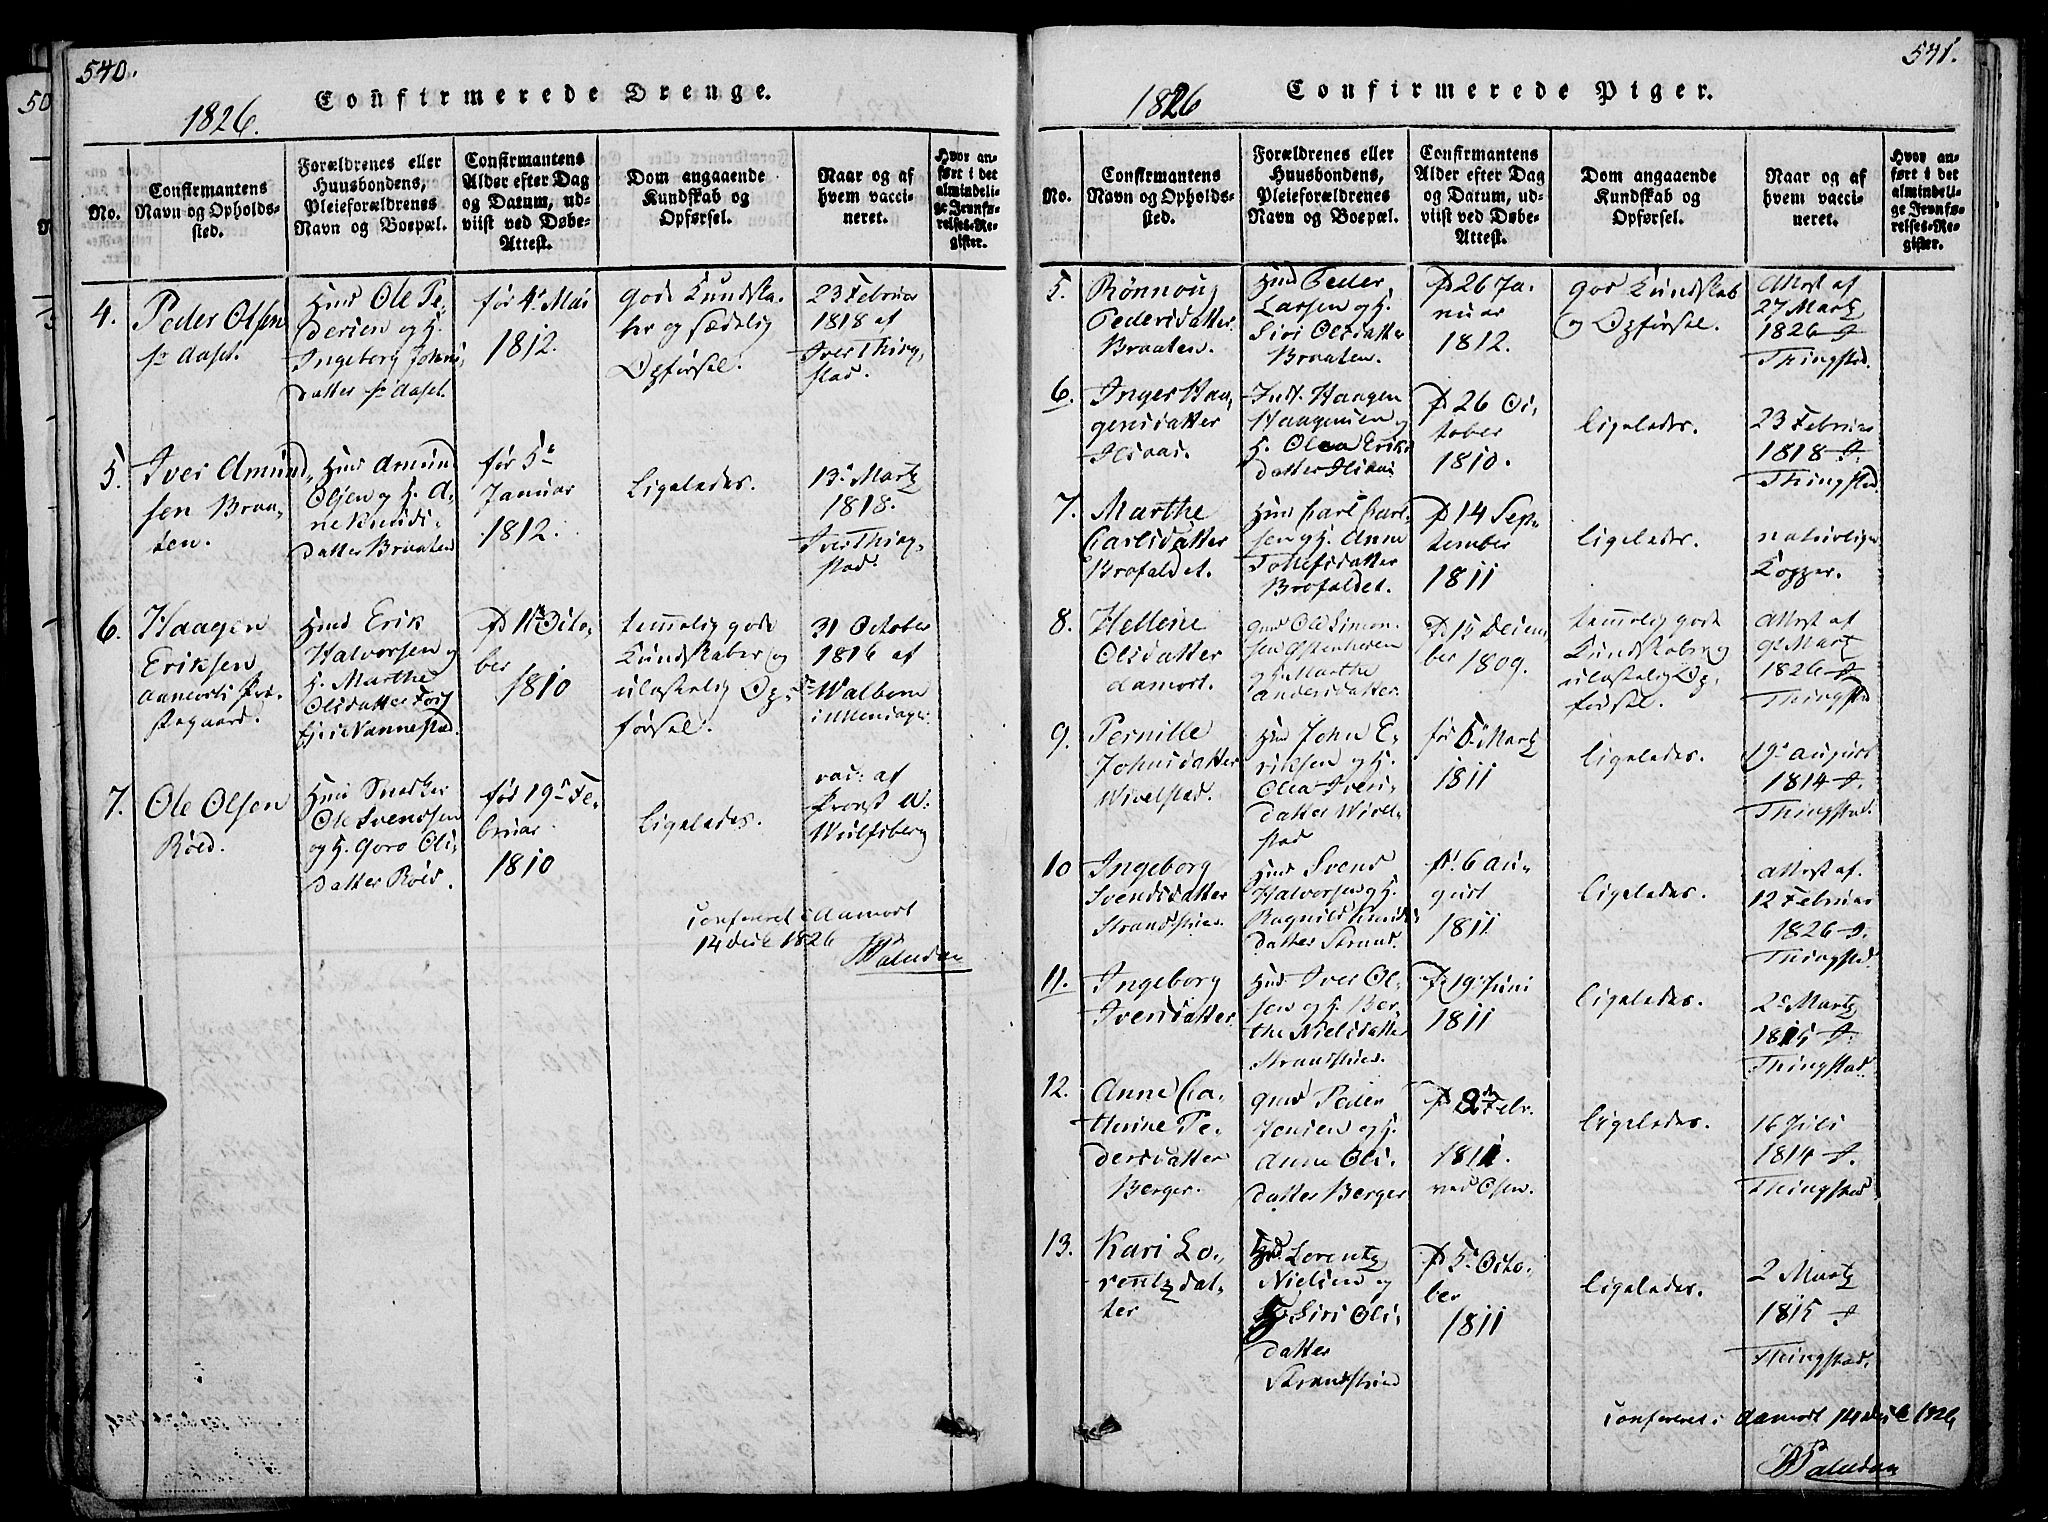 540.
Confirmerede Drenge.
1826.
No.
Confirmantens
Navn og Opholds-
sted.
Forældrenes eller
Huusbondens,
Pleieforældrenes
Navn og Boepæl.
Confirmantens
Alder efter Dag
og Datum, ud-
viist ved Døbe-
Attest.
Dom angaaende
Kundskab og
Opførsel.
Naar og af
hvem vacci-
neret.
Hvor an-
ført i det
almindeli-
ge Jevnfø-
relses-Re-
gister.
4.
Peder Olsen
Huus Ole Pe-
dersen og H.
Ingeborg Johns
datter
før 4de Mai
1812.
gode Kundska-
ber og sædelig
Opførsel.
23 Februar
1818 af
Iver Thing-
stad.
5.
Iver Amund-
sen Braa-
ten.
Huus Amund
Olsen og H. A-
ne Knuds-
datter Braaten
før 5te
Januar
1812.
Ligeledes.
13. Martz
1818.
Iver Thing-
stad.
6.
Haagen
Eriksen
Aamorts Præ-
stegaard.
Huus Erik
Halvorsen og
H. Marthe
Olsdatter
i Nannestad.
11te Octo-
ber
1810
temmelig gode
Kundskaber og
ulastelig Op-
førsel.
31 October
1816 af
Walborn
7.
Ole Olsen
Röed.
Huus
Ole Svendsen
og H. Goro Ols-
datter Röed.
før 19de Fe-
bruar
1810
Ligeledes.
vac: af
Provst N:
Wulfsberg
Confereret i Aamort
14 1826
Paludan
541.
Confirmerede Piger.
1826
No.
Confirmantens
Navn og Opholds-
sted.
Forældrenes eller
Huusbondens,
Pleieforældrenes
Navn og Boepæl.
Confirmantens
Alder efter Dag
og Datum, ud-
viist ved Døbe-
Attest.
Dom angaaende
Kundskab og
Opførsel.
Naar og af
hvem vacci-
neret.
Hvor an-
ført i det
almindeli-
ge Jevnfø-
relses-Re-
gister.
5.
Rönnoug
Pedersdatter
Braaten.
Huus Peder
Larsen og H.
Siri Olsdatter
Braaten.
26 Ja-
nuar
1812.
god Kundskab
og Opførsel.
Attest af
27 Martz
1826
Thingstad.
6.
Inger Haa-
gensdatter
Haagen
Haagensen og
H. Olea Eriks
datter
26 Oc-
tober
1810.
Ligeledes.
23 Februar
1818
Thingstad.
7.
Marthe
Carlsdatter
Brofaldet.
Huus Carl Carl-
sen og H. Anne
Tollefsdatter
Brofaldet.
14 Sep-
tember
1811
Ligeledes.
naturlige
Kopper.
8.
Hellene
Olsdatter
Aamort.
Ole Simon-
sen
og H. Marthe
Andersdatter.
15 Decem-
ber 1809.
temmelig gode
Kundskaber og
ulastelig Op-
førsel.
Attest af
9de Martz
1826
Thingstad
9.
Pernille
Johnsdatter
Wivelstad.
Huus John E-
riksen og H.
Olea Ivers-
datter Wivel-
stad
før 5te Martz
1811
Ligeledes.
19de August
1814
Thingstad.
10
Ingeborg
Svendsdatter
Huus Svend
Halvorsen og H.
Ragnild Knuds
datter Strand.
6 Au-
gust
1811
Ligeledes.
Attest af
12 Februar
1826
Thingstad.
11.
Ingeborg
Iversdatter
Huus Iver Ol-
sen og H. Ber-
the Nielsdatter
19de Juni
1811
Ligeledes.
2de Martz
1815
Thingstad.
12.
Anne Ca-
thrine Pe-
dersdatter
Berger.
Peder
Jensen og H.
Anne Ols-
datter Berger
2den Febr.
1811.
Ligeledes.
16 Juli
1814
Thingstad.
13.
Kari Lo-
rentzdat-
ter
Lorentz
Nielsen og
H. Siri Ols-
datter
5. Octo-
ber
1811
Ligeledes.
2 Martz
1815
Thingstad.
Confereret i Aamort 14 1826
Paludan